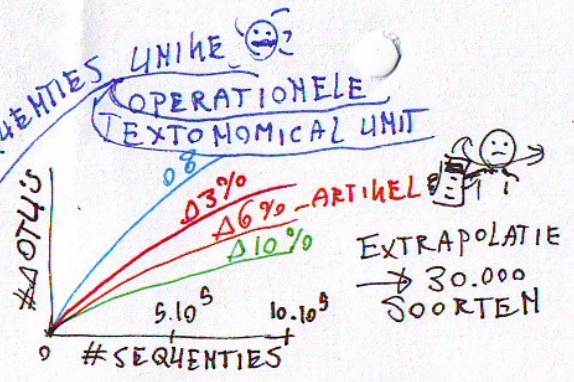 UNIKE
QUENTIES
OPERATIONELE
TEXTONOMICAL UNIT
0%
Δ3%
Δ6% - ARTIKEL
Δ10%
EXTRAPOLATIE
→ 30.000
SOORTEN
# Δ OTU'S
5.10⁵
10.10⁵
0
# SEQUENTIES